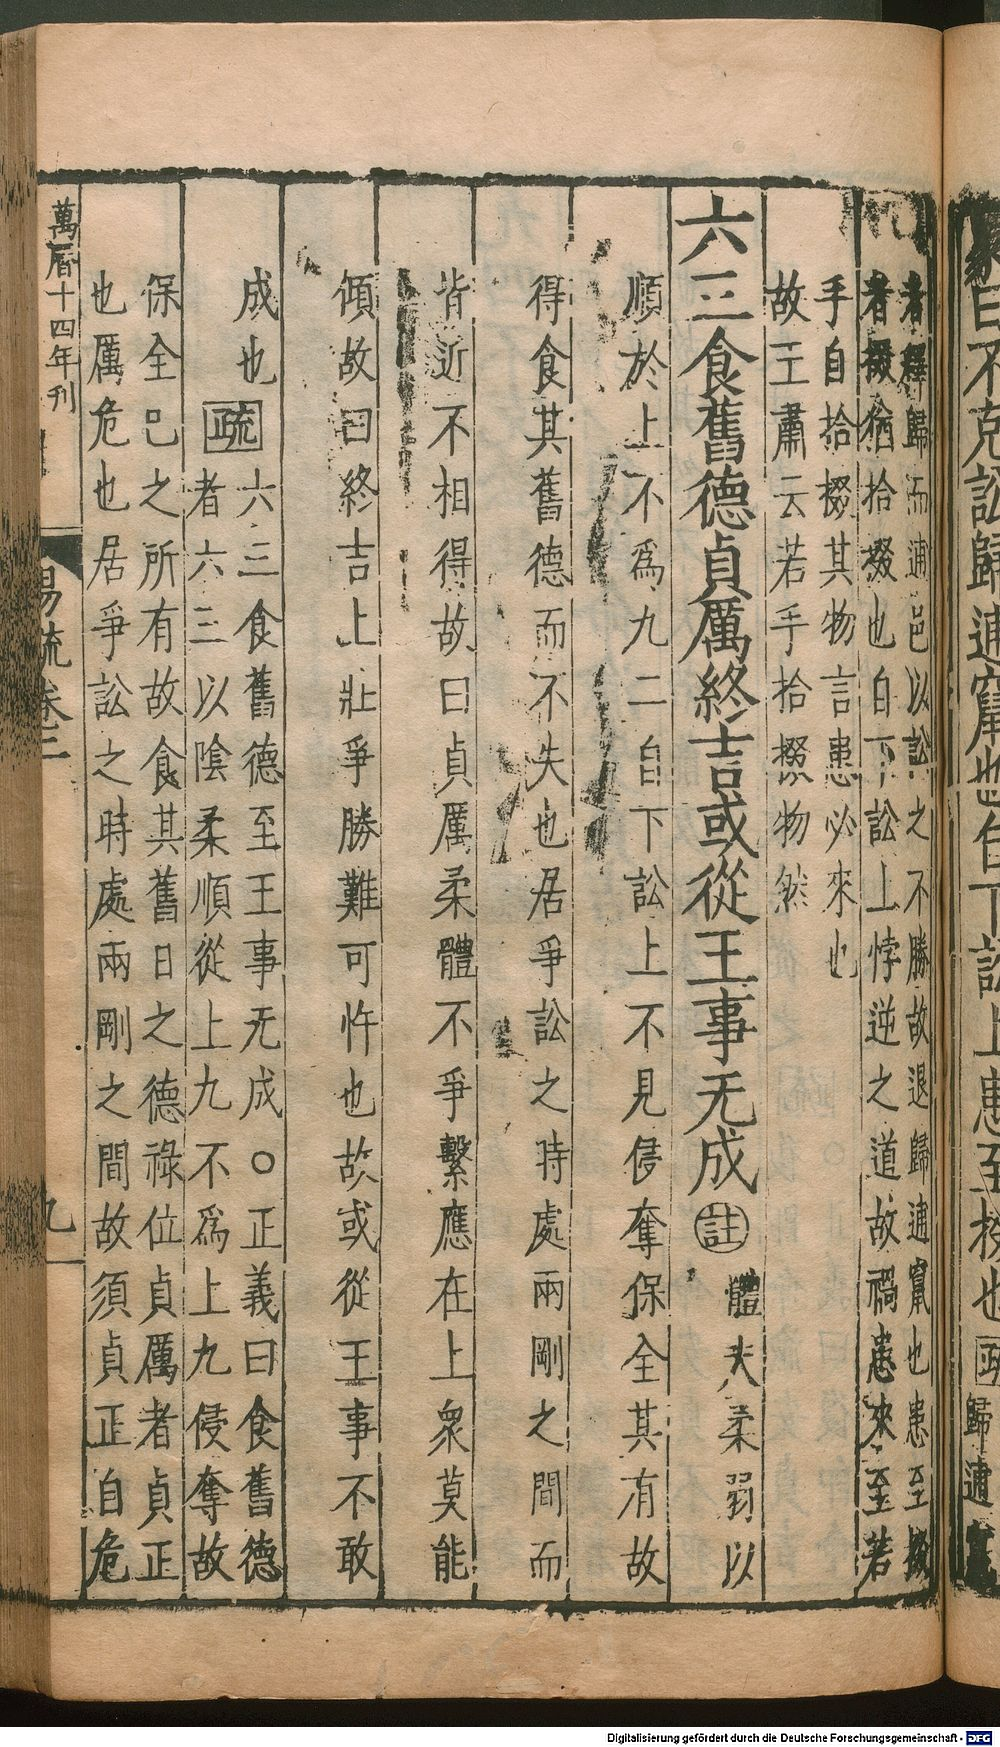 象曰不克訟歸逋竄也自下訟上患至掇也疏
歸逋竄
者釋歸而逋邑以訟之不勝故退歸逋竄也患至掇
者掇猶拾掇也自下訟上悖逆之道故禍患來至若
手自拾掇其物言患必來也
故王肅云若手拾掇物然
六三食舊德貞厲終吉或從王事无成註體夫柔弱以
順於上不爲九二自下訟上不見侵奪保全其有故
得食其舊德而不失也居爭訟之時處兩剛之間而
皆近不相得故曰貞厲柔體不爭繫應在上衆莫能
傾故曰終吉上壯爭勝難可忤也故或從王事不敢
成也疏六三食舊德至王事无成○正義曰食舊德
者六三以陰柔順從上九不爲上九侵奪故
保全已之所有故食其舊日之德祿位貞厲者貞正
也厲危也居爭訟之時處兩剛之間故須貞正自危
萬曆十四年刊
易疏卷三
九
Digitalisierung gefördert durch die Deutsche Forschungsgemeinschaft - DFG